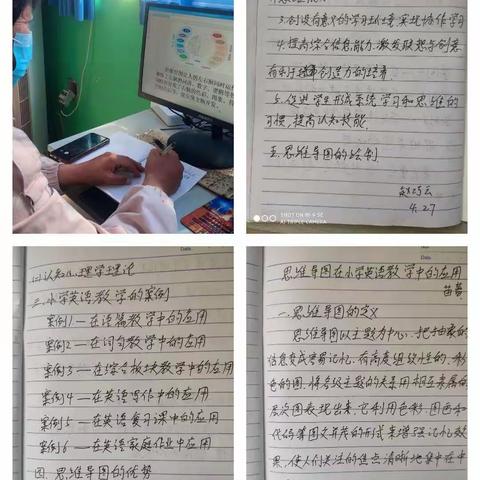 3.创设有意义的学习环境,实现协作学习
4.提高综合信息能力,激发联想与创意,
有利于创造力的培养
5.促进学生形成系统学习和思维的
习惯,提高认知技能.
五.思维导图的绘制.
4.27
SHOT ON MI 9 SE
AI TRIPLE CAMERA
四认知心理学理论
三.小学英语教学的案例
案例1—在语篇教学中的应用
案例2—在词句教学中的应用
案例3—在综合板块教学中的应用
案例4—在英语写作中的应用
案例5—在英语复习课中的应用
案例6—在英语家庭作业中应用
四.思维导图的优势
Date
思维导图在小学英语教学中的应用
苗梦
一.思维导图的定义
思维导图以主题为中心,把抽象的
信息变成容易记忆、有高度组织性的、彩
色的图,将各级主题的关系用相互隶属的
层次图表现出来,它利用色彩、图画和
代码等图文并茂的形式来增强记忆效
果,使人们关注的焦点清晰地集中在中